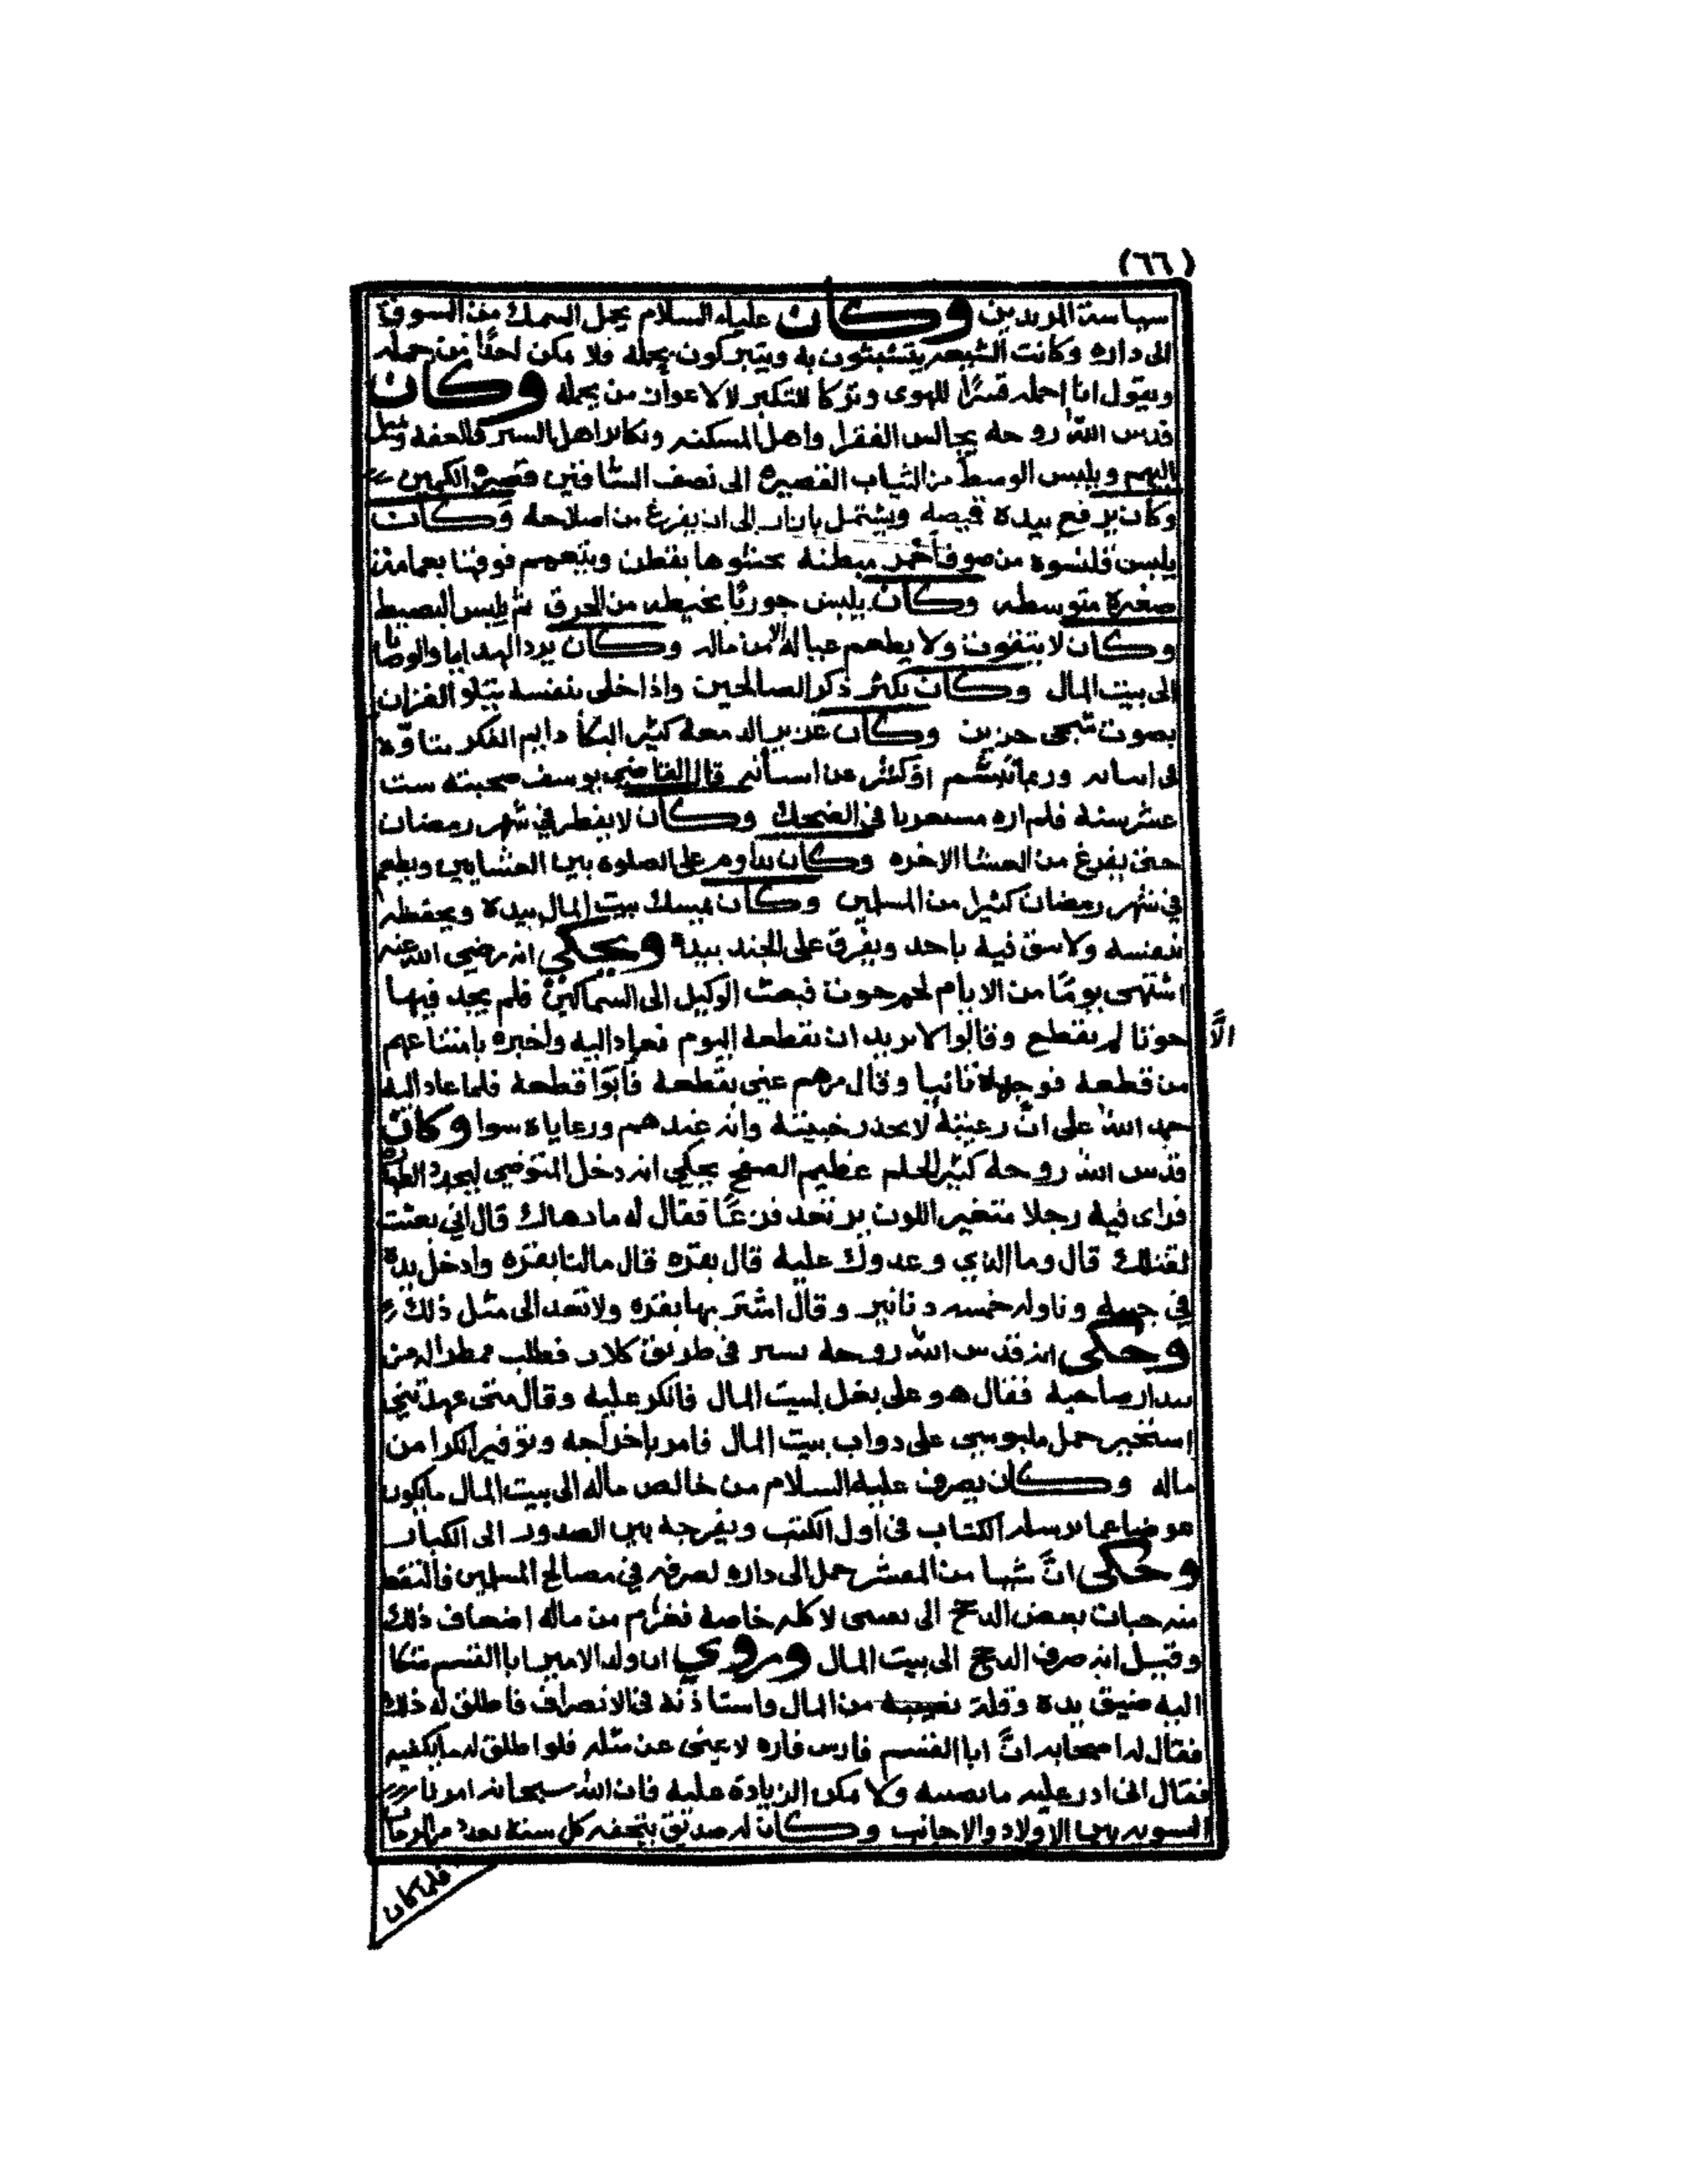 (٦٦)
سياسة المريدين وكان عليه السلام يحمل السمك من السوق
الى داره وكانت الشيعه يتشبثون به ويتبركون بحمله ولا يمكن احدًا من حمله
ويقول انا احمله قسرًا للهوى وتركا للتكبر لا لاعواز من يحمله وكان
قدس الله روحه يجالس الفقرا واهل المسكنه ويكاثر اهل الستر والعفه ويميل
اليهم ويلبس الوسط من الثياب القصيرة الى نصف الساقين قصير الكمين
وكان يرفع بيده قميصه ويشتمل بازار الى ان يفرغ من اصلاحه وكان
يلبس قلنسوه من صوف احمر مبطنة يحشوها بقطن ويتعمم فوقها بعمامة
صغيرة متوسطه وكان يلبس جوربًا يخيطه من الخرق ثم يلبس
وكان لا يتقوت ولا يطعم عياله الا من ماله وكان يرد الهدايا والوصايا
الى بيت المال وكان يكثر ذكر الصالحين واذا خلى بنفسه يتلو القران
بصوت شجى حزين وكان غزير الدمعة كثير البكا دايم الفكر يتاوه
في وربما تبسم او كشر عن اسنانه قال القاضي يوسف صحبته ست
عشر سنة فلم اره مستغربا في الضحك وكان لا يفطر في شهر رمضان
حتى يفرغ من العشا الاخره وكان يداوم على الصلوة بين العشايين ويطعم
في شهر رمضان كثيرا من المسلمين وكان يمسك بيت المال بيده ويحفظه
بنفسه ولا يثق فيه باحد ويفرق على الجند بيده ويحكى انه رضي الله عنه
اشتهى يومًا من الايام لحم حوت فبعث الوكيل الى السماكين فلم يجد فيها
الَّا
حوتا لم يقطع وقالوا لا نريد ان نقطعه اليوم فعاد اليه واخبره بامتناعهم
من قطعه فوجهه ثانيا وقال مرهم عني بقطعه فابوا قطعه فلما عاد اليه
حمد الله على انَّ رعيته لا يحذر وانه عندهم ورعاياه سوا وكان
قدس الله روحه كثير الحلم عظيم الصفح يحكى انه دخل المتوضي ليجدد الطهارة
فراى فيه رجلا متغير اللون يرتعد فزعًا فقال له ما دهاك قال اني بعثت
لقتلك قال وما الذي وعدوك عليه قال بقره قال مالنا بقره وادخل يده
في جيبه وناوله خمسه دنانير وقال اشتر بها بقره ولا تعد الى مثل ذلك
وحكى انه قدس الله روحه في طريق كلار فطلب ممطرا له من
صاحبه فقال هو على بغل لبيت المال فانكر عليه وقال متى عهدتني
استخير حمل ملبوسي على دواب بيت المال فامر باخراجه وتوفير الكرا من
ماله وكان يصرف عليه السلام من خالص ماله الى بيت المال ما يكون
عوضا عما يرسله الكتاب في اول الكتب ويفرجه بين الصدور الى الكبار
وحكى انَّ شيا من المعشر حمل الى داره لصرفه في مصالح المسلمين فالتقط
منه حبات بعض الدجج التى لاكله خاصة فغرم من ماله اضعاف ذلك
وقيل انه صرف الدجج الى بيت المال وروي ان ولده الامير ابا القسم شكا
اليه ضيق يده وقلة نصيبه من المال واستاذنه في الانصراف فاطلق له ذلك
فقال له اصحابه انَّ ابا القسم فارس فاره لا غنى عن مثله فلو اطلق له ما يكفيه
فقال انى ادر عليه ما نصيبه ولا يمكن الزيادة عليه فان الله سبحانه امرنا
السويه بين الاولاد والاجانب وكان له صديق يتحفه كل سنة
فلما كان